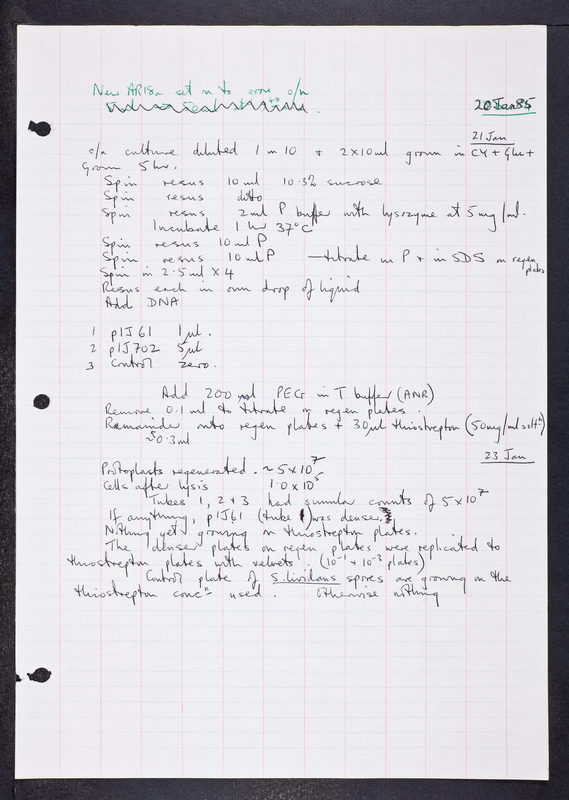 New AR18a set in to grow o/n
20 Jan 85
21 Jan
o/n culture diluted 1 in 10 + 2x10ml grown in CY + Glu +
Grown 5 hr.
Spin resus 10 ml 10.3% sucrose
Spin resus ditto
Spin resus 2ml P buffer with lysozyme at 5mg/ml.
Incubate 1 hr 37°C
Spin resus 10ml P
Spin resus 10ml P — titrate in P + in SDS on regen plates
Spin in 2.5ml x 4
Resus each in own drop of liquid
Add DNA
1 pIJ61 1µl.
2 pIJ702 5µl
3 Control zero.
Add 200µl PEG in T buffer (ANR)
Remove 0.1ml to titrate on regen plates.
Remainder onto regen plates + 30µl thiostrepton (50mg/ml soltn)
~0.3ml
23 Jan
Protoplasts regenerated. ~5x10^7
Cells after lysis 1.0x10^5
Tubes 1, 2 + 3 had similar counts of 5x10^7
If anything, pIJ61 (tube 1) was denser.
Nothing yet growing on thiostrepton plates.
The dense plates on regen plates were replicated to
thiostrepton plates with velvets. (10^-1 + 10^-3 plates)
Control plate of S. lividans spores are growing on the
thiostrepton concn used. Otherwise nothing